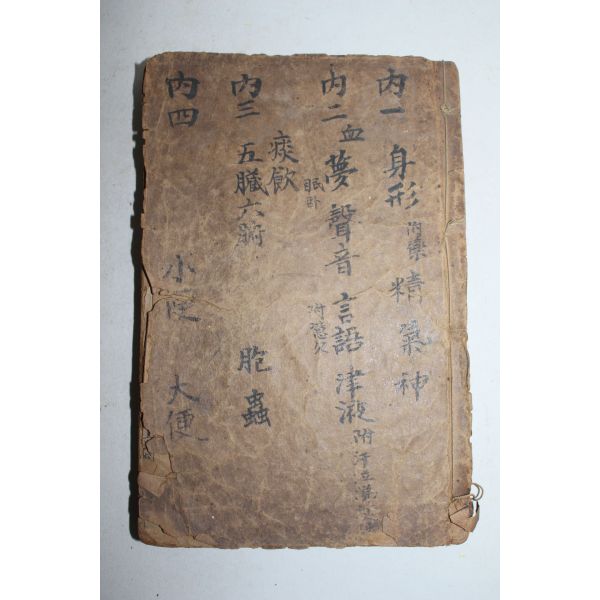 內一 身形 附 精 氣 神
內二 血 夢 眠卧 聲音 言語 附 津液 附汗
痰飮
內三 五臟六腑 胞 蟲
內四 小便 大便